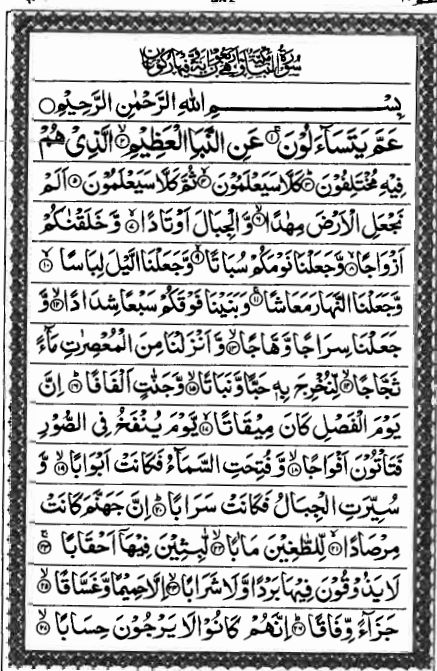 سُوْرَةُ النَّبَاِ مَكِّيَّةٌ وَّهِيَ اَرْبَعُوْنَ اٰيَةً وَّفِيْهَا رُكُوْعَانِ
بِسْمِ اللّٰهِ الرَّحْمٰنِ الرَّحِيْمِ
عَمَّ يَتَسَآءَلُوْنَ ۝۱ عَنِ النَّبَاِ الْعَظِيْمِ ۝۲ الَّذِيْ هُمْ
فِيْهِ مُخْتَلِفُوْنَ ۝۳ كَلَّا سَيَعْلَمُوْنَ ۝۴ ثُمَّ كَلَّا سَيَعْلَمُوْنَ ۝۵ اَلَمْ
نَجْعَلِ الْاَرْضَ مِهٰدًا ۝۶ وَّالْجِبَالَ اَوْتَادًا ۝۷ وَّخَلَقْنٰكُمْ
اَزْوَاجًا ۝۸ وَّجَعَلْنَا نَوْمَكُمْ سُبَاتًا ۝۹ وَّجَعَلْنَا الَّيْلَ لِبَاسًا ۝۱۰
وَّجَعَلْنَا النَّهَارَ مَعَاشًا ۝۱۱ وَبَنَيْنَا فَوْقَكُمْ سَبْعًا شِدَادًا ۝۱۲ وَّ
جَعَلْنَا سِرَاجًا وَّهَّاجًا ۝۱۳ وَّاَنْزَلْنَا مِنَ الْمُعْصِرٰتِ مَآءً
ثَجَّاجًا ۝۱۴ لِّنُخْرِجَ بِهٖ حَبًّا وَّنَبَاتًا ۝۱۵ وَّجَنّٰتٍ اَلْفَافًا ۝۱۶ اِنَّ
يَوْمَ الْفَصْلِ كَانَ مِيْقَاتًا ۝۱۷ يَّوْمَ يُنْفَخُ فِي الصُّوْرِ
فَتَاْتُوْنَ اَفْوَاجًا ۝۱۸ وَّفُتِحَتِ السَّمَآءُ فَكَانَتْ اَبْوَابًا ۝۱۹ وَّ
سُيِّرَتِ الْجِبَالُ فَكَانَتْ سَرَابًا ۝۲۰ اِنَّ جَهَنَّمَ كَانَتْ
مِرْصَادًا ۝۲۱ لِّلطَّغِيْنَ مَاٰبًا ۝۲۲ لّٰبِثِيْنَ فِيْهَآ اَحْقَابًا ۝۲۳
لَا يَذُوْقُوْنَ فِيْهَا بَرْدًا وَّلَا شَرَابًا ۝۲۴ اِلَّا حَمِيْمًا وَّغَسَّاقًا ۝۲۵
جَزَآءً وِّفَاقًا ۝۲۶ اِنَّهُمْ كَانُوْا لَا يَرْجُوْنَ حِسَابًا ۝۲۷